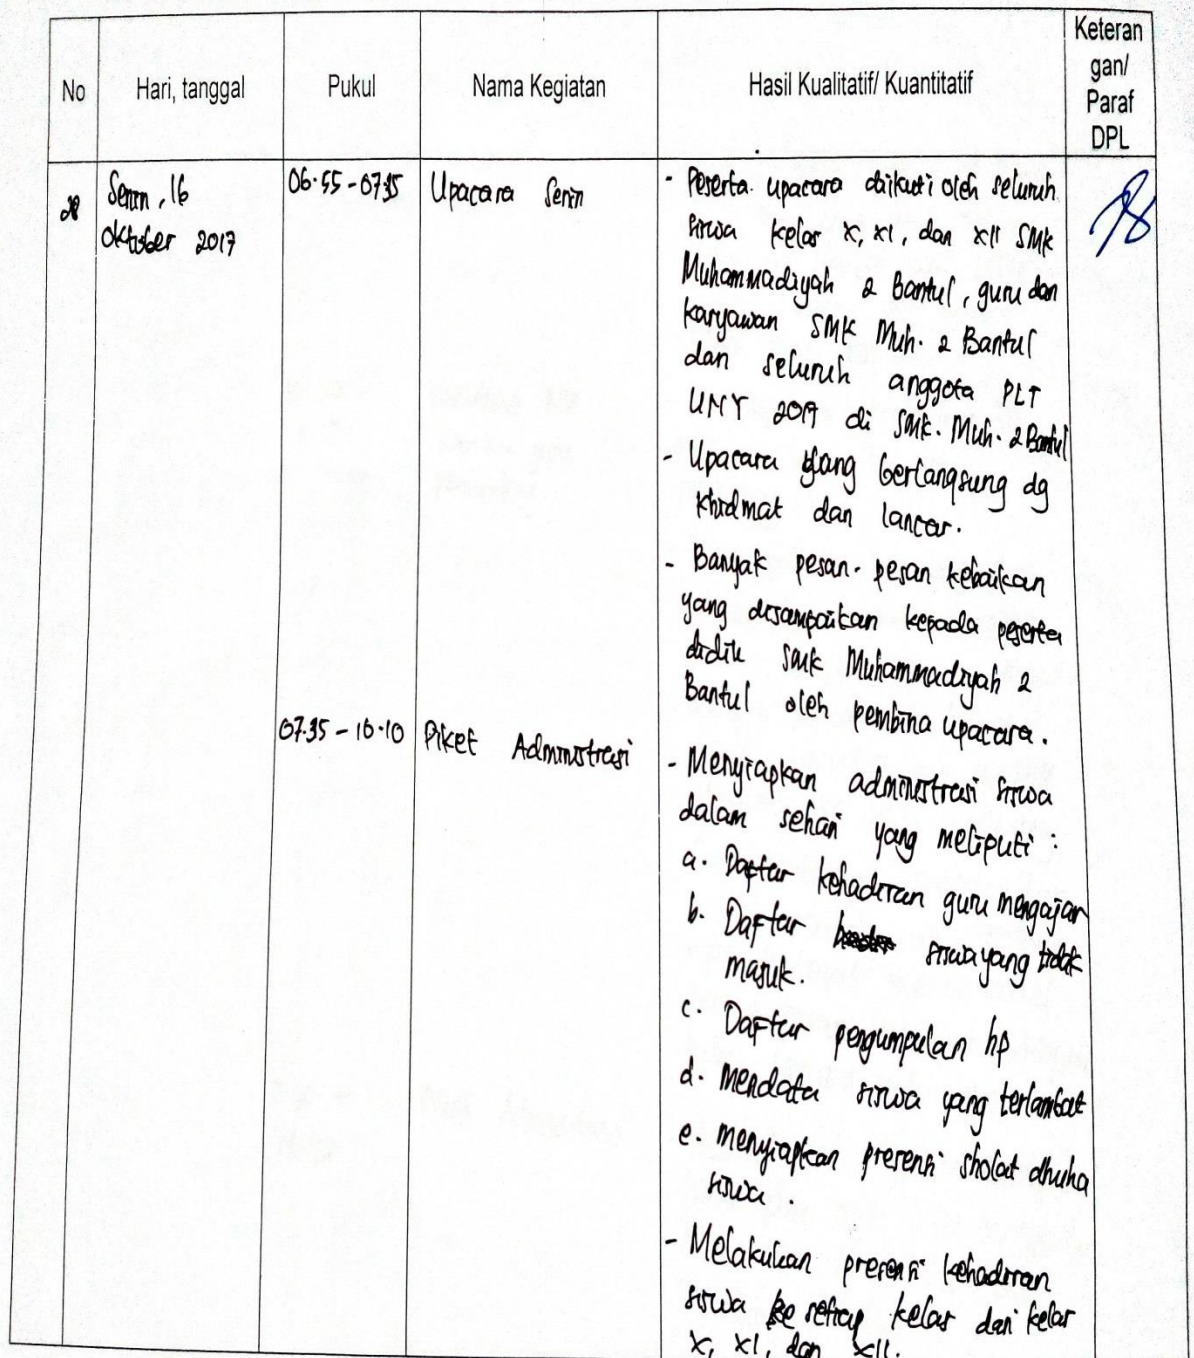 No
Hari, tanggal
Pukul
Nama Kegiatan
Hasil Kualitatif/ Kuantitatif
Keteran
gan/
Paraf
DPL
Senin, 16
Oktober 2017
06.55 - 07.35
Upacara Senin
- Peserta upacara diikuti oleh seluruh
siswa kelas X, XI, dan XII SMK
Muhammadiyah 2 Bantul, guru dan
karyawan SMK Muh. 2 Bantul
dan seluruh anggota PLT
UNY 2017 di SMK. Muh. 2 Bantul
- Upacara yang berlangsung dg
khidmat dan lancar.
- Banyak pesan-pesan kebaikan
yang disampaikan kepada peserta
didik SMK Muhammadiyah 2
Bantul oleh pembina upacara.
07.35 - 16.10
Piket Administrasi
- Menyiapkan administrasi siswa
dalam sehari yang meliputi :
a. Daftar kehadiran guru mengajar
b. Daftar siswa yang tidak
masuk.
c. Daftar pengumpulan hp
d. Mendata siswa yang terlambat
e. menyiapkan presensi sholat dhuha
siswa.
- Melakukan presensi kehadiran
siswa ke setiap kelas dari kelas
X, XI, dan XII.